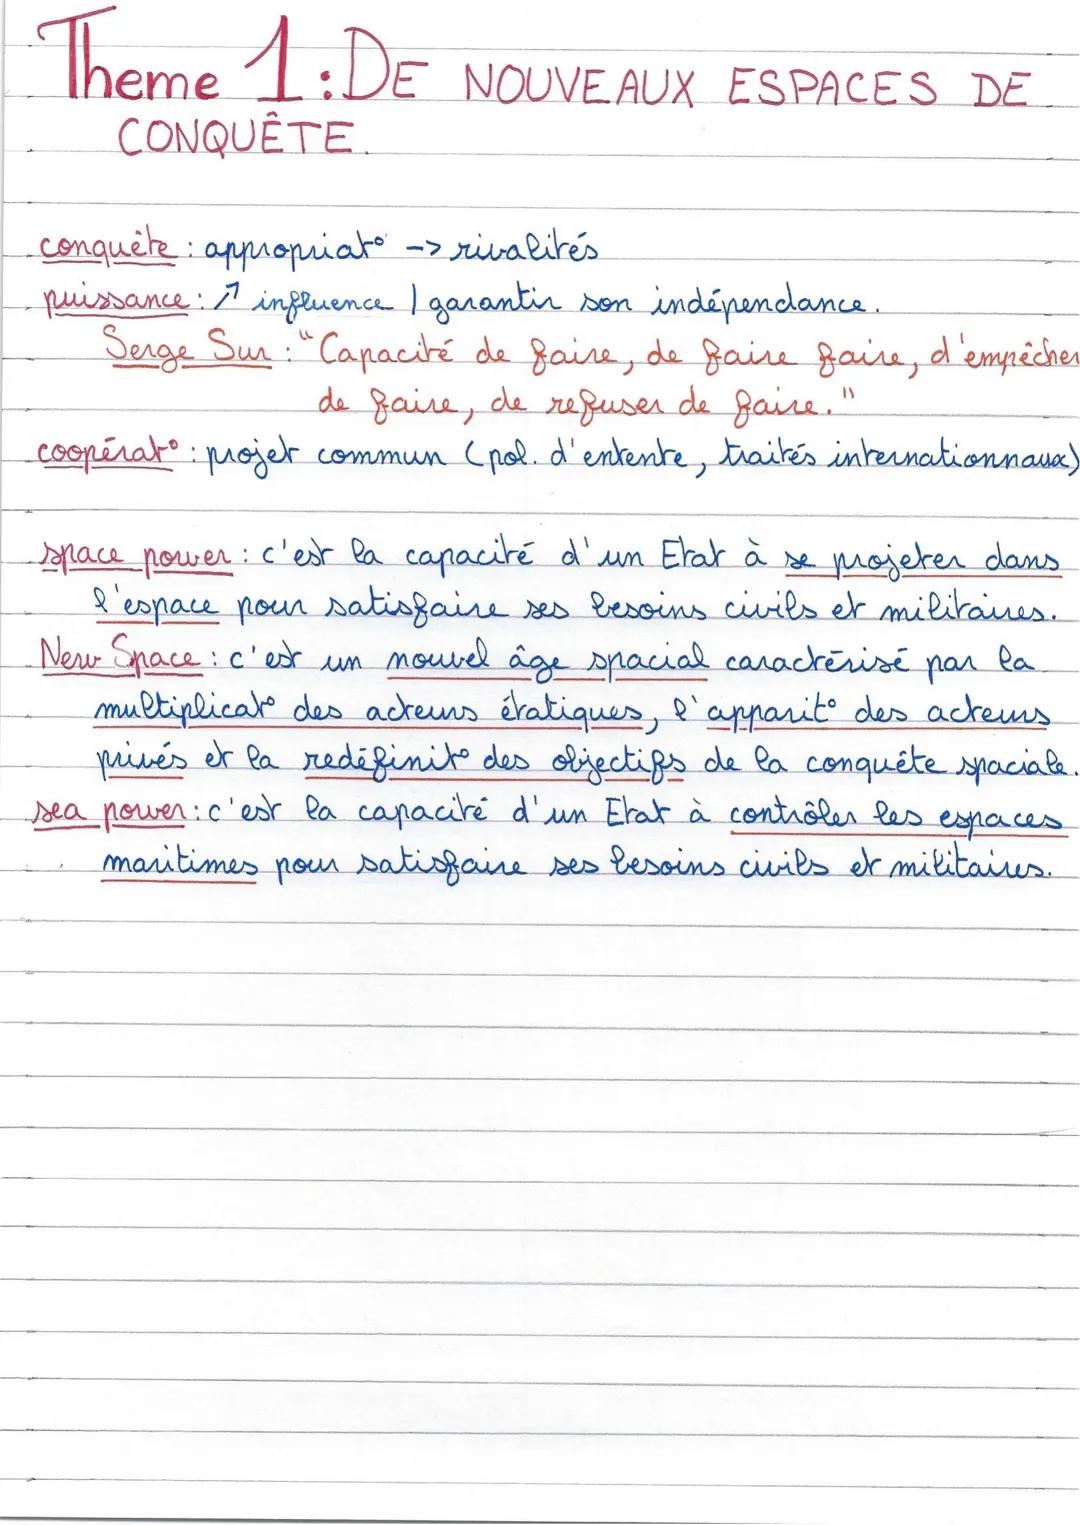 Theme 1 : DE NOUVEAUX ESPACES DE
CONQUÊTE.
conquête : appropriat° -> rivalités
puissance : ↗ influence / garantir son indépendance.
Serge Sur : "Capacité de faire, de faire faire, d'empêcher
de faire, de refuser de faire."
coopérat° : projet commun (pol. d'entente, traités internationnaux)
space power : c'est la capacité d'un Etat à se projeter dans
l'espace pour satisfaire ses besoins civils et militaires.
New Space : c'est un nouvel âge spacial caractérisé par la
multiplicat° des acteurs étatiques, l'apparit° des acteurs
privés et la redéfinit° des objectifs de la conquête spaciale.
sea power : c'est la capacité d'un Etat à contrôler les espaces
maritimes pour satisfaire ses besoins civils et militaires.